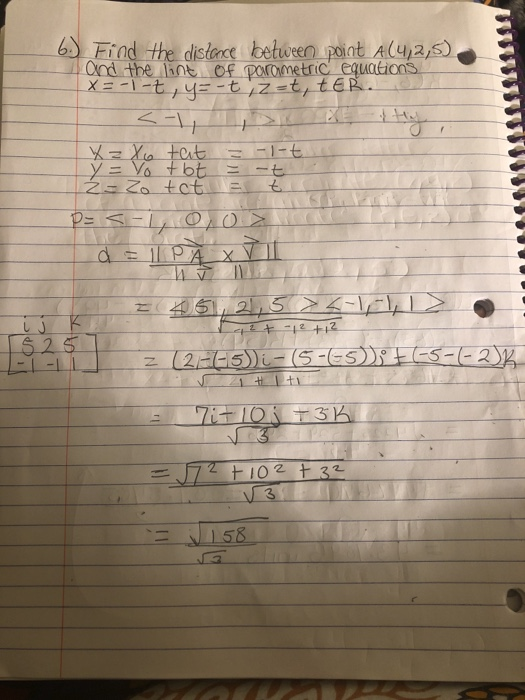 6.) Find the distance between point A(4,2,5)
and the line of parametric equations
x = -1-t, y = -t, z = t, t∈R.
< -1, , >
x = x₀ + at = -1-t
y = y₀ + bt = -t
z = z₀ + ct = t
P = < -1, 0, 0 >
d = ||PA × V||
||V||
= <5, 2, 5> <-1, -1, 1>
√-1² + -1² + 1²
i j K
5 2 5
-1 -1 1
= (2-(-5))i - (5-(-5))j + (-5-(-2))K
√1 + 1 + 1
= 7i - 10j - 3K
√3
= √7² + 10² + 3²
√3
= √158
√3